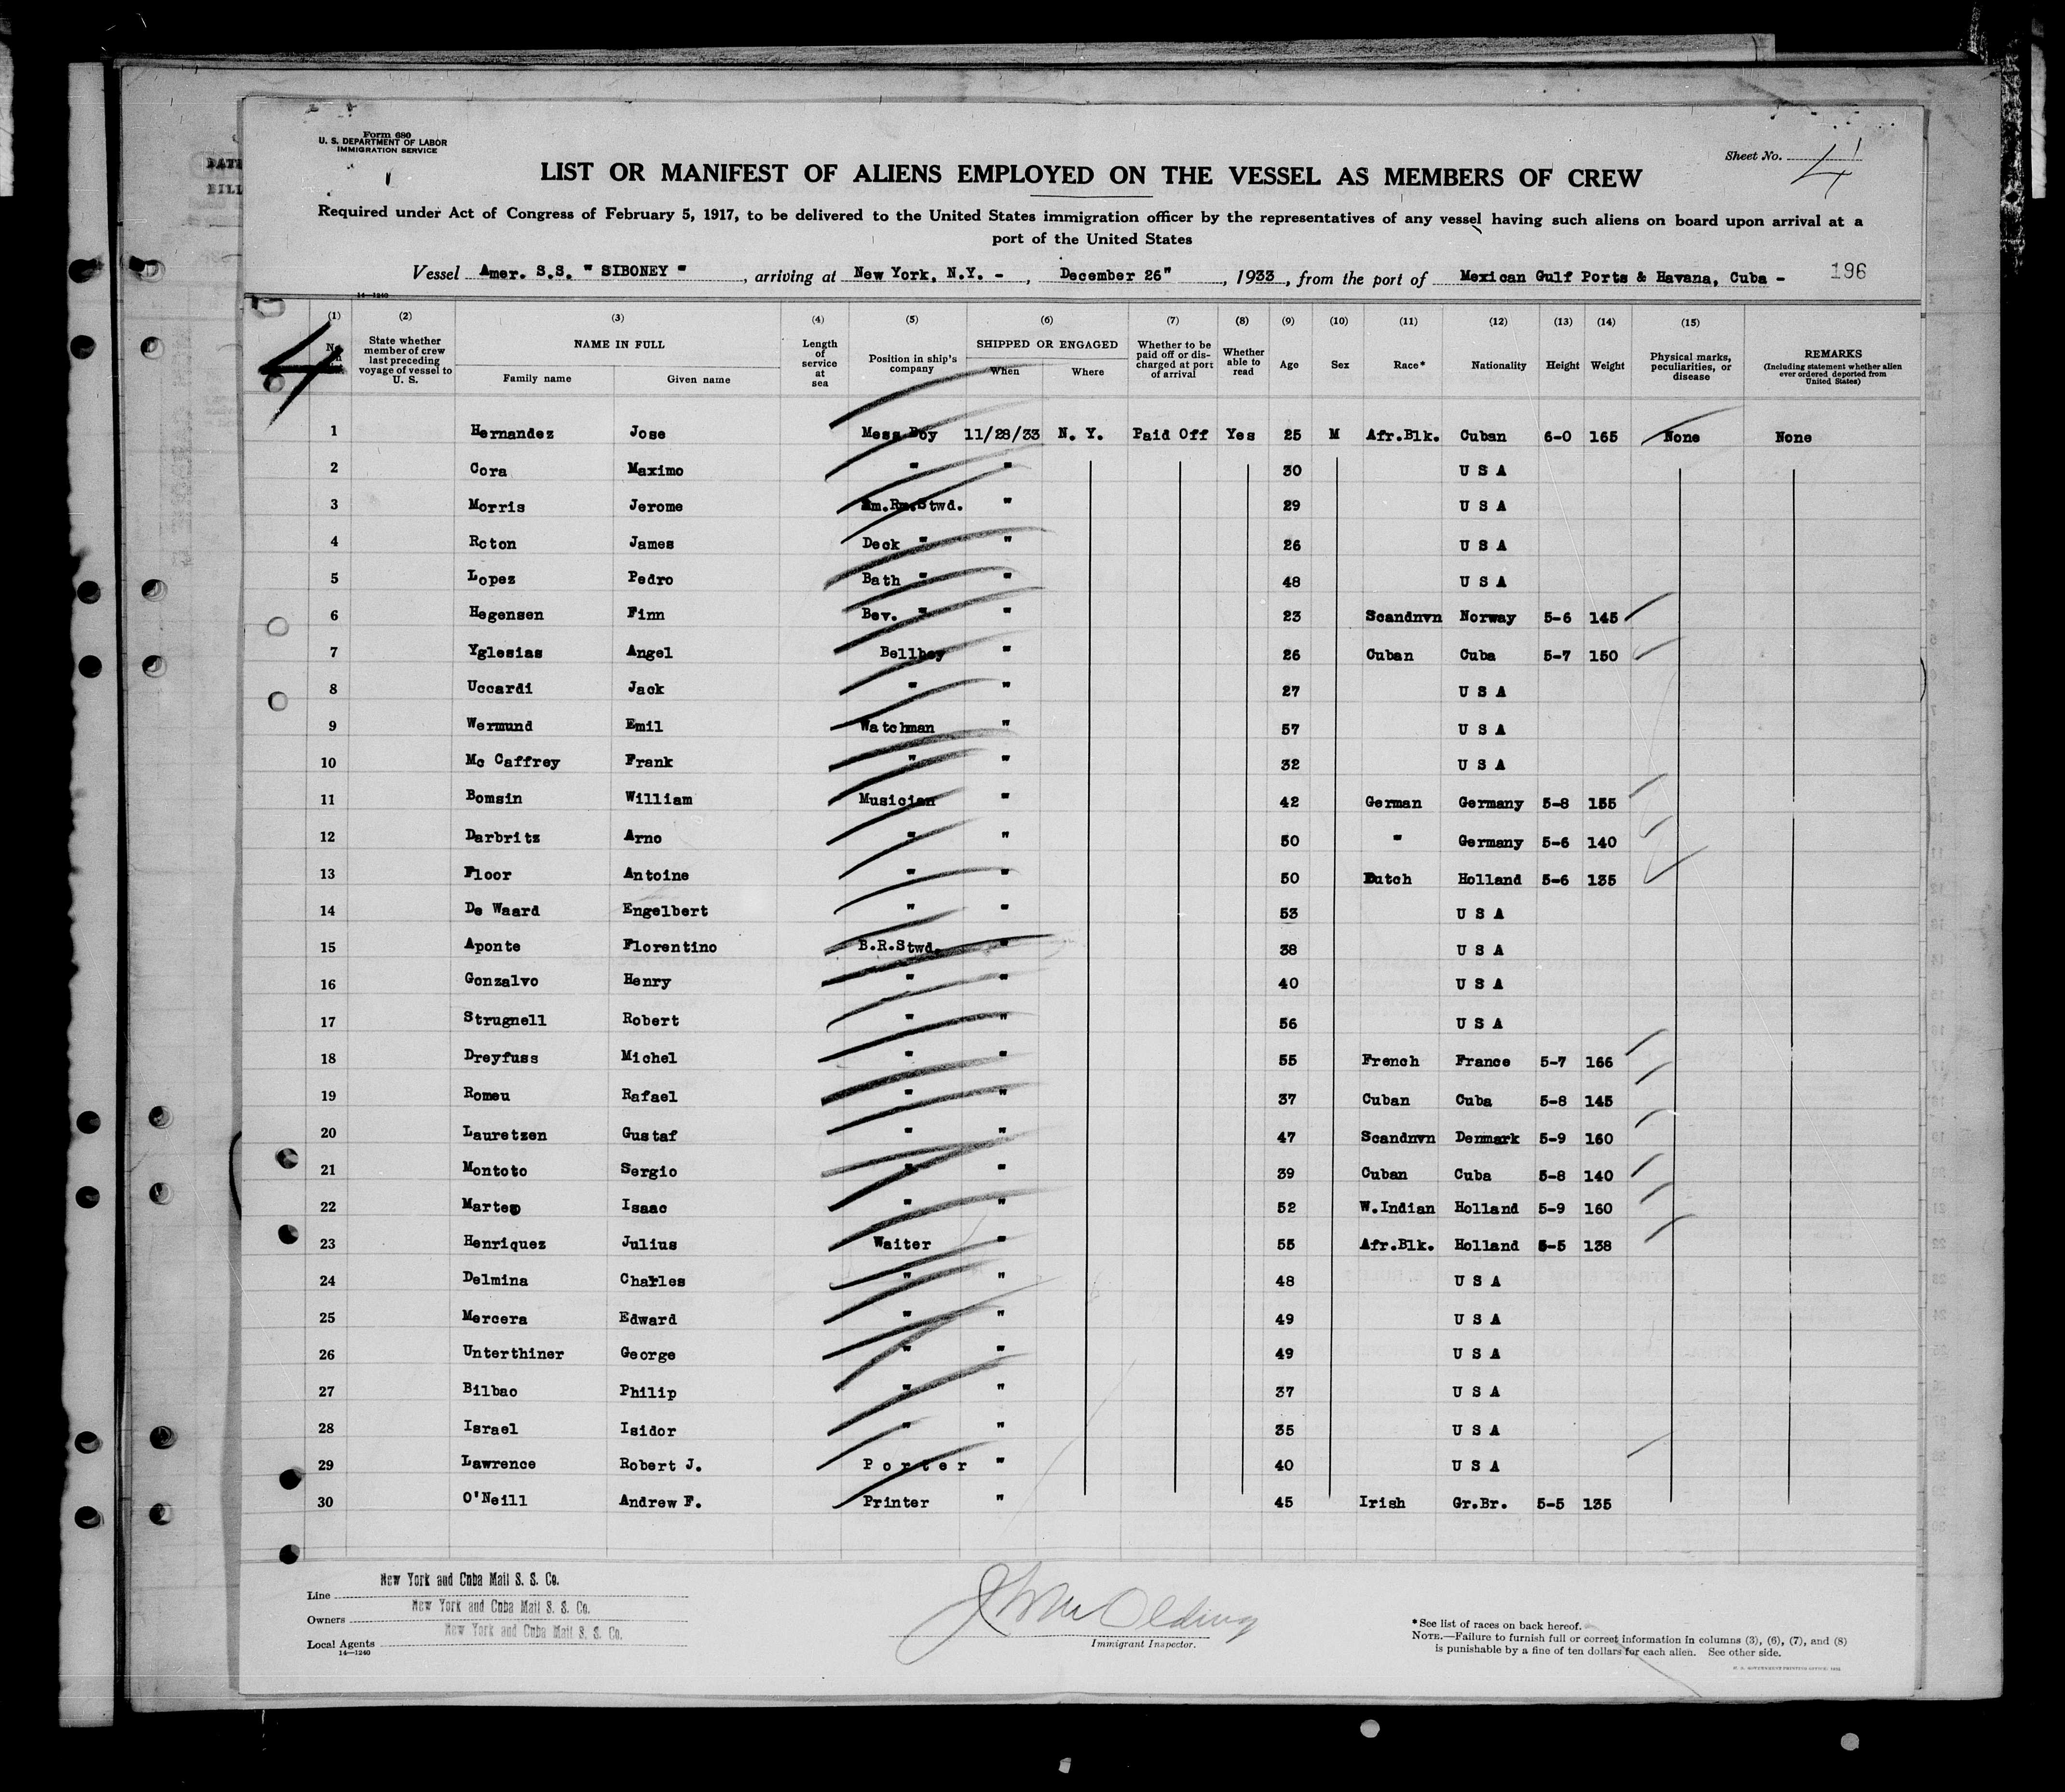 Form 680
U. S. DEPARTMENT OF LABOR
IMMIGRATION SERVICE
Sheet No. 4
LIST OR MANIFEST OF ALIENS EMPLOYED ON THE VESSEL AS MEMBERS OF CREW
Required under Act of Congress of February 5, 1917, to be delivered to the United States immigration officer by the representatives of any vessel having such aliens on board upon arrival at a
port of the United States
Vessel Amer. S.S. " SIBONEY ", arriving at New York, N.Y. -, December 26", 1933, from the port of Mexican Gulf Ports & Havana, Cuba - 196
14-1240
4
(1) (2) (3) (4) (5) (6) (7) (8) (9) (10) (11) (12) (13) (14) (15)
State whether member of crew last preceding voyage of vessel to U. S. NAME IN FULL Family name Given name Length of service at sea Position in ship's company SHIPPED OR ENGAGED When Where Whether to be paid off or discharged at port of arrival Whether able to read Age Sex Race* Nationality Height Weight Physical marks, peculiarities, or disease REMARKS (Including statement whether alien ever ordered deported from United States)
1 Hernandez Jose Mess Boy 11/28/33 N. Y. Paid Off Yes 25 M Afr.Blk. Cuban 6-0 165 None None
2 Cora Maximo " " 30 U S A
3 Morris Jerome Sm.Rm.Stwd. " 29 U S A
4 Roton James Deck " " 26 U S A
5 Lopez Pedro Bath " " 48 U S A
6 Hegensen Finn Bev. " " 23 Scandnvn Norway 5-6 145
7 Yglesias Angel Bellboy " 26 Cuban Cuba 5-7 150
8 Uccardi Jack " " 27 U S A
9 Wermund Emil Watchman " 57 U S A
10 Mc Caffrey Frank " " 32 U S A
11 Bomsin William Musician " 42 German Germany 5-8 155
12 Darbritz Arno " " 50 " Germany 5-6 140
13 Floor Antoine " " 50 Dutch Holland 5-6 135
14 De Waard Engelbert " " 53 U S A
15 Aponte Florentino B.R.Stwd. " 38 U S A
16 Gonzalvo Henry " " 40 U S A
17 Strugnell Robert " " 56 U S A
18 Dreyfuss Michel " " 55 French France 5-7 166
19 Romeu Rafael " " 37 Cuban Cuba 5-8 145
20 Lauretzen Gustaf " " 47 Scandnvn Denmark 5-9 160
21 Montoto Sergio " " 39 Cuban Cuba 5-8 140
22 Isaac " " 52 W.Indian Holland 5-9 160
23 Henriquez Julius Waiter " 55 Afr.Blk. Holland 5-5 138
24 Delmina Charles " " 48 U S A
25 Mercera Edward " " 49 U S A
26 Unterthiner George " " 49 U S A
27 Bilbao Philip " " 37 U S A
28 Israel Isidor " " 35 U S A
29 Lawrence Robert J. Porter " 40 U S A
30 O'Neill Andrew F. Printer " 45 Irish Gr.Br. 5-5 135
Line New York and Cuba Mail S. S. Co.
Owners New York and Cuba Mail S. S. Co.
Local Agents New York and Cuba Mail S. S. Co.
14-1240
Immigrant Inspector.
*See list of races on back hereof.
NOTE.—Failure to furnish full or correct information in columns (3), (6), (7), and (8)
is punishable by a fine of ten dollars for each alien. See other side.